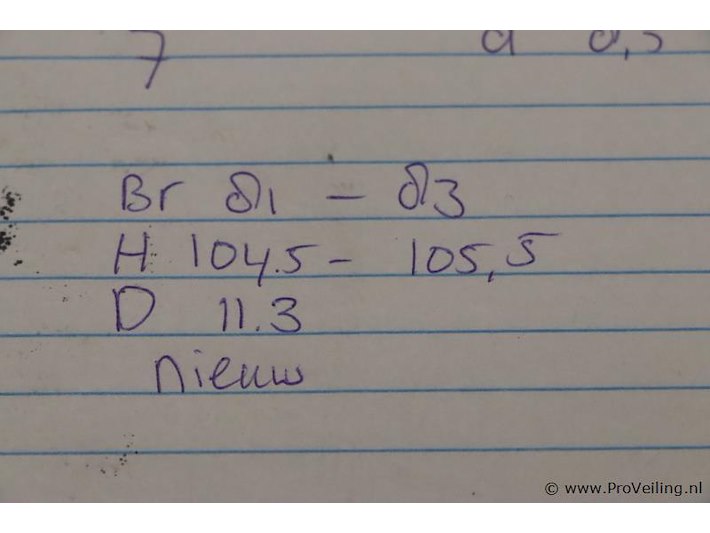 7 d 8,5
Br 81 – 83
H 104.5 – 105,5
D 11.3
nieuw
© www.ProVeiling.nl